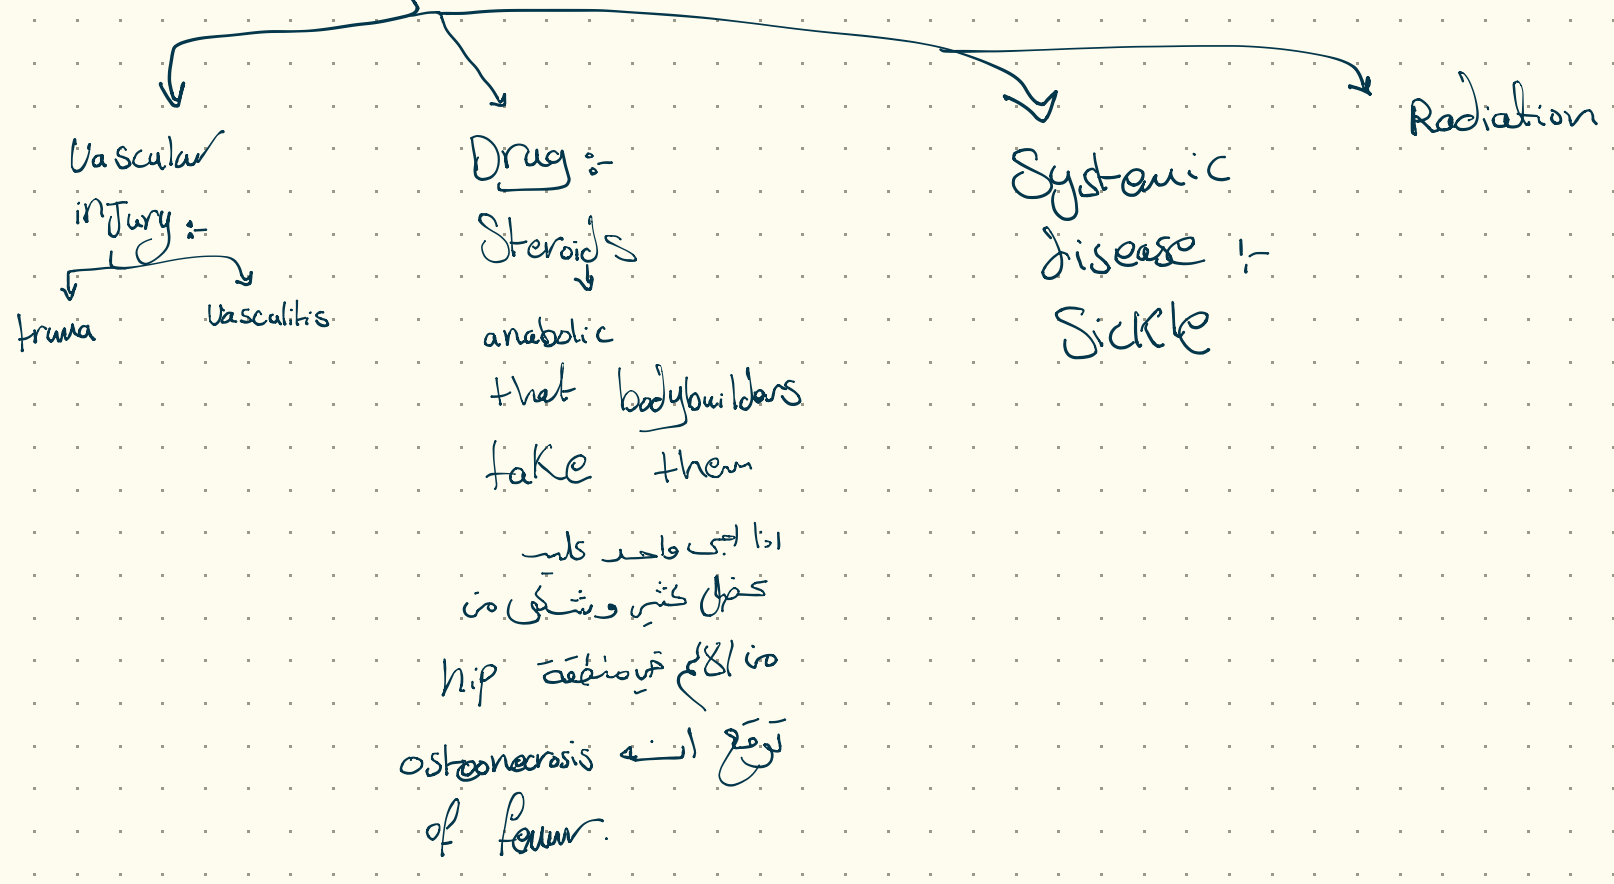 Vascular
injury :-
truma
Vasculitis
Drug :-
Steroids
anabolic
that bodybuilders
take them
اذا اجى واحد كليت
عضل كثير وشكى من
من الالم في منطقة hip
توقع انه osteonecrosis
of femur.
Systemic
disease :-
Sickle
Radiation